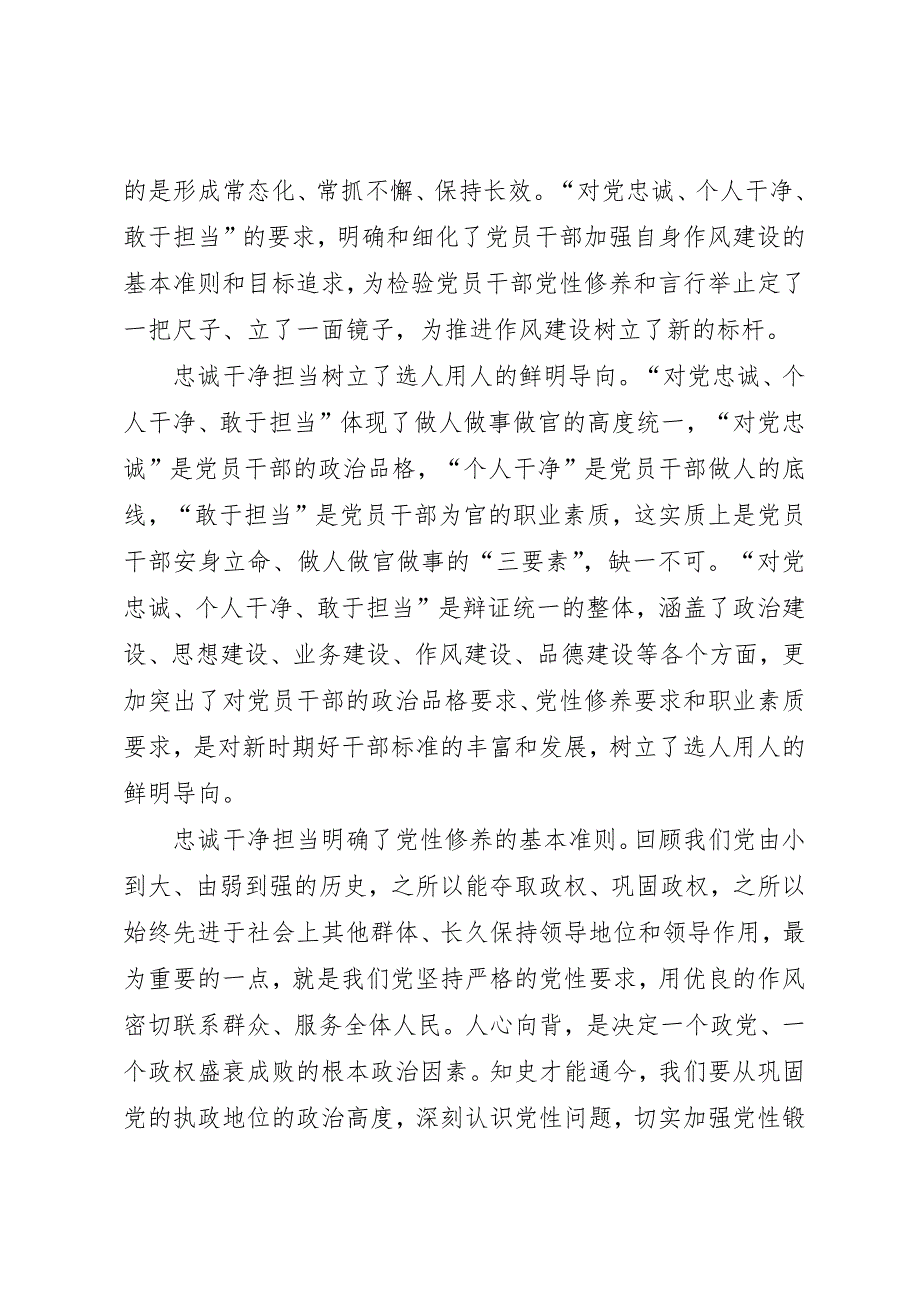 的是形成常态化、常抓不懈、保持长效。“对党忠诚、个人干净、
敢于担当”的要求，明确和细化了党员干部加强自身作风建设的
基本准则和目标追求，为检验党员干部党性修养和言行举止定了
一把尺子、立了一面镜子，为推进作风建设树立了新的标杆。
忠诚干净担当树立了选人用人的鲜明导向。“对党忠诚、个
人干净、敢于担当”体现了做人做事做官的高度统一，“对党忠
诚”是党员干部的政治品格，“个人干净”是党员干部做人的底
线，“敢于担当”是党员干部为官的职业素质，这实质上是党员
干部安身立命、做人做官做事的“三要素”，缺一不可。“对党
忠诚、个人干净、敢于担当”是辩证统一的整体，涵盖了政治建
设、思想建设、业务建设、作风建设、品德建设等各个方面，更
加突出了对党员干部的政治品格要求、党性修养要求和职业素质
要求，是对新时期好干部标准的丰富和发展，树立了选人用人的
鲜明导向。
忠诚干净担当明确了党性修养的基本准则。回顾我们党由小
到大、由弱到强的历史，之所以能夺取政权、巩固政权，之所以
始终先进于社会上其他群体、长久保持领导地位和领导作用，最
为重要的一点，就是我们党坚持严格的党性要求，用优良的作风
密切联系群众、服务全体人民。人心向背，是决定一个政党、一
个政权盛衰成败的根本政治因素。知史才能通今，我们要从巩固
党的执政地位的政治高度，深刻认识党性问题，切实加强党性锻